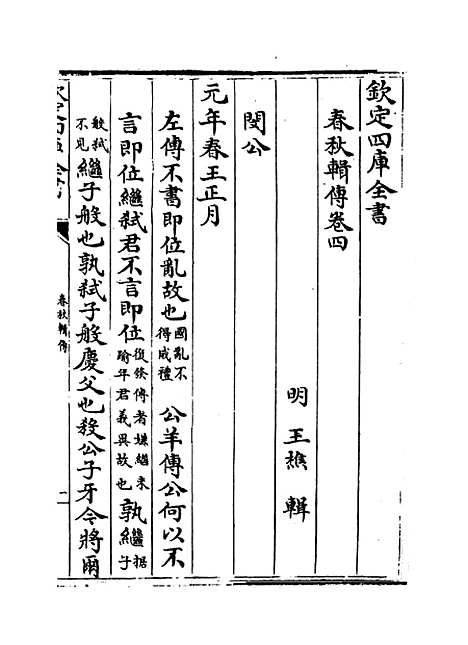 欽定四庫全書
春秋輯傳卷四
明 王樵 輯
閔公
元年春王正月
左傳不書即位亂故也國亂不得成禮 公羊傳公何以不
言即位繼弑君不言即位復發傳者嫌繼未踰年君義異故也孰繼據子
般弑不見繼子般也孰弑子般慶父也殺公子牙今將爾
春秋輯傳